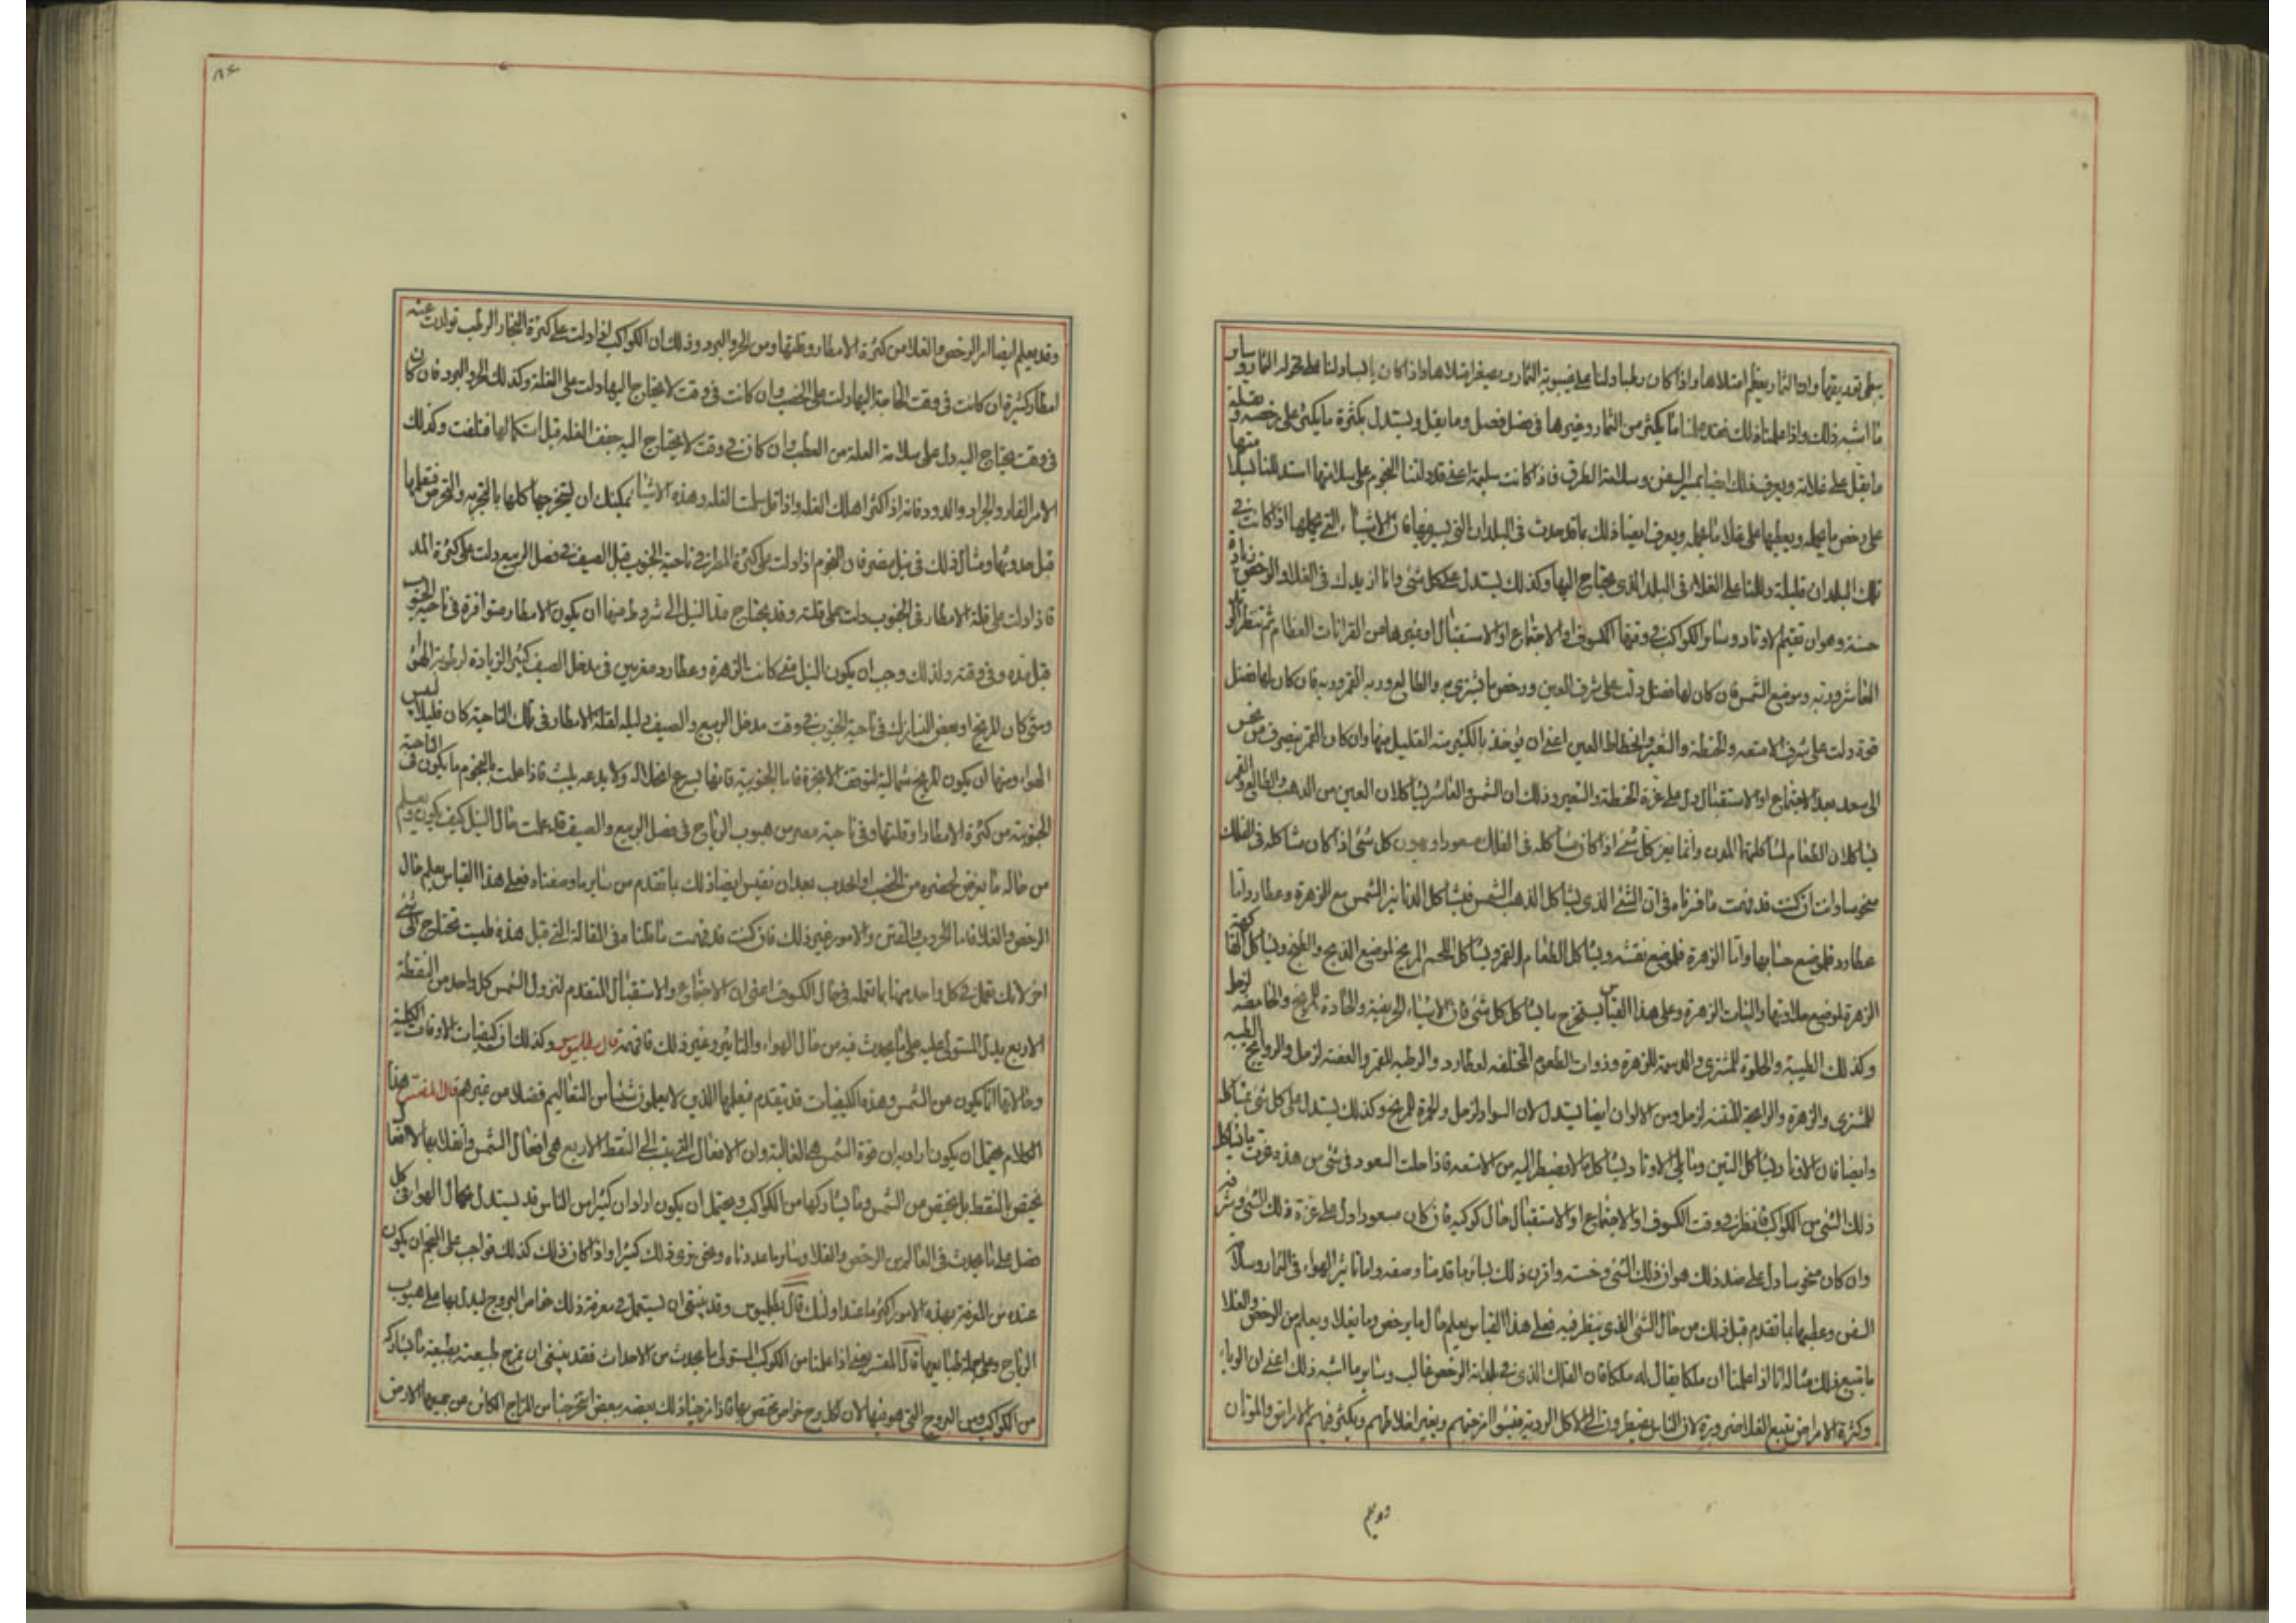 يعطى تعديقها وادا الثمار يعظم امتلاها واذا كان رطبا دلنا على خيبوبة الثمار وبصغر امتلاها واذا كان يابسا دلنا على الثمار وساير
ما اشبه ذلك واذا علمنا ذلك فقد علمنا ما يكثر من الثمار وغيرها فى فصل فصل وما يقل ويستدل بكثرة ما يكثر على رخصه وبقلة
ما يقل على غلائه ويعرف ذلك ايضا بمسير السفن وسلامة الطرق فاذا كانت سليمة اعنى قد دلتنا النجوم على سلامتها استدللنا بسلامتها
على رخص ما تحمله وبعطبها على غلا ما تحمله ويعرف ايضا ذلك بما قد حدث فى البلدان التى يسير منها فان الاشياء التى يحملها اذا كانت فى
تلك البلدان قليلة دللنا على الغلاء فى البلد الذى يحتاج اليها وكذلك يستدل على كل شئ وانا ازيدك فى الغلا والرخص زيادة
حسنة وهو ان تقيم الاوتاد وساير الكواكب فى وقتها الكسوف او الاجتماع او الاستقبال او غيرها من القرانات العظام ثم تنظر الى
العاشر وربه وموضع الشمس فان كان لها فضل دلت على شرف العين ورخص ما يشترى به والطالع وربه القمر وربه فان كان لها فضل
قوة دلت على شرف الامتعة والحنطة والشعير وانحطاط العين اعنى ان يؤخذ بالكثير منه القليل منها وان كان القمر ينصرف من نحس
الى سعد بعد الاجتماع او الاستقبال دل على عزة الحنطة والشعير وذلك ان الشمس والعاشر يشاكلان العين من الذهب والطالع والقمر
يشاكلان الطعام لمشاكلتها البدن وانما يعز كل شئ اذا كان مشاكله فى الفلك مسعودا ويهون كل شئ اذا كان مشاكله فى الفلك
منحوسا وانت ان كنت قد فهمت ما قرناه فى ان الشئ الذى يشاكل الذهب الشمس فيشاكل الدنانير الشمس مع الزهرة وعطارد واما
عطارد فلموضع حسابها واما الزهرة فلموضع نقشه ويشاكل الطعام القمر ويشاكل اللحم المريخ لموضع الذبح والطبخ ويشاكل الفاكهة
الزهرة لموضع حلاوتها والنبات الزهرة وعلى هذا القياس يستخرج ما يشاكل كل شئ فان الاشياء الحريفية والحادة للمريخ والحامضة لزحل
وكذلك الطيبة والحلوة للمشترى والدسمة للزهرة وذوات الطعوم المختلفه لعطارد والرطبه للقمر والعفصه لزحل والروايح الطيبه
للمشترى والزهرة والرايحة المنتنه لزحل ومن الالوان ايضا يستدل لان السواد لزحل والحمرة للمريخ وكذلك يستدل على كل شئ بمشاكله
وايضا فان الاوتاد يشاكل التين وما يلى الاوتاد يشاكل ما لا يضطر اليه من الامتعه فاذا حلت السعود فى شئ من هذه عرفت ما يشاكل
ذلك الشئ من الكواكب فانظر فى وقت الكسوف او الاجتماع او الاستقبال حال كوكبه فان كان مسعودا دل على عزة ذلك الشئ وشرفه
وان كان منحوسا دل على ضد ذلك هوان ذلك الشئ وخسته واقرن ذلك بساير ما قدمنا وصفه واما تاثير الهواء فى الثمار وسلامة
السفن وعطبها بما تقدم قبل ذلك من حال الشئ الذى ينظر فيه فعلى هذا القياس يعلم حال ما يرخص وما يغلا ويعلم من الرخص والغلا
ما يتبع ذلك مثاله انا لو اعلمنا ان ملكا يقال له ملكا فان الفلك الذى فى بلدانه الرخص غالب وساير ما اشبه ذلك اعنى ان الوباء
وكثرة الامراض يتبع الغلا ضرورة لان الناس يضطرون الى اكل الردية فيفسد امزجتهم ويغير اخلاطهم ويكثر فيهم الامراض والموتان
وقد
وقد يعلم ايضا امر الرخص والغلا من كثرة الامطار وقلتها ومن الحر والبرد وذلك ان الكواكب اذا دلت على كثرة البخار الرطب تولدت عنه
امطار كثيرة ان كانت فى وقت الحاجة اليها دلت على الخصب وان كانت فى وقت لا يحتاج اليها دلت على القلة وكذلك الحر والبرد فان كان
فى وقت يحتاج اليه دل على سلامة الغلة من العطب وان كان فى وقت لا يحتاج اليه جفف الغله قبل استكمالها فتلفت وكذلك
الامر الفار والجراد والدود فانه اذا كثر اهلك الغله واذا قل سلمت الغله وهذه الاشيا يمكنك ان تستخرجها كلها بالتجربه والتحرص فتعلمها
قبل حدوثها ومثال ذلك فى نيل مصر فان النجوم اذا دلت على كثرة المطر فى ناحية الجنوب قبل الصيف فى فصل الربيع دلت على كثرة المد
فاذا دلت على قلة الامطار فى الجنوب دلت على قلته وقد يحتاج مد النيل الى شروط منها ان يكون الامطار متوافرة فى ناحية الجنوب
قبل مده وفى وقته ولذلك وجب ان يكون النيل متى كانت الزهرة وعطارد مغربين فى مدخل الصيف كثير الزيادة لرطوبة الهواء
ومتى كان المريخ او بعض النيازك فى ناحية الجنوب فى وقت مدخل الربيع والصيف دليله لقلة الامطار فى تلك الناحية كان قليلا ليبس
الهواء ومنها ان يكون الريح شمالية لتوقف الابخرة فاما الجنوبية فانها يسرع انحلاله ولا يدعه يلبث فاذا علمت بالنجوم ما يكون فى الناحية
الجنوبية من كثرة الامطار او قلتها وفى ناحية مصر من هبوب الرياح فى فصل الربيع والصيف فقد علمت حال النيل كيف يكون ويعلم
من حاله ما يعرض لحضره من الخصب او الجدب بعد ان تقيس ايضا ذلك بما تقدم من ساير ما وصفناه فعلى هذا القياس يعلم حال
الرخص والغلا فاما الحروب والفتن والامور غير ذلك فان كنت قد فهمت ما قلنا فى المقالة التى قبل هذه فليست تحتاج الى شئ
اخر لانك تعمل فى كل واحد منها بما تعمله فى حال الكسوف اعنى ان الاجتماع والاستقبال المتقدم لنزول الشمس كل واحد من النقطة
الاربع يدل المستولى عليه على ما يحدث فيه من حال الهواء والتاثير وغير ذلك فافهمه قال بطلميوس وكذلك ان كيفيات الاوقات الكلية
وحالاتها انما يكون من الشمس وهذه الكيفيات قد يتقدم فيعلمها الذين لا يعلمون شيئا من التعاليم فضلا من غيرهم قال المفسر هذا
الكلام يحتمل ان يكون اراد به ان قوة الشمس هى الغالبة وان الافعال التى ينسب الى النقط الاربع هى افعال الشمس وانقلابها لا افعال
يختص بالنقط بل يختص من الشمس وما يشاركها من الكواكب ويحتمل ان يكون اراد ان كثيرا من الناس قد يستدل بحال الهواء فى كل
فصل على ما يحدث فى العالم من الرخص والغلا وساير ما عددناه ونحن نرى ذلك كثيرا واذا كان ذلك كذلك فواجب على المنجم ان يكون
عنده من المعرفة بهذه الامور اكثر ما عند اولئك قال بطلميوس وقد ينبغى ان يستعمل فى معرفة ذلك خواص البروج ليدل بها على هبوب
الرياح وعلى جملة طبايعها قال المفسر يعنى اذا علمنا من الكوكب المستولى ما يحدث من الاحداث فقد ينبغى ان نمزج طبيعته بطبيعة ما يشاركه
من الكواكب ومن البروج التى هو فيها لان لكل برج خواص يختص بها فاذا مزجنا ذلك بعضه ببعض استخرجنا من المزاج الكائن من جميعها الارض